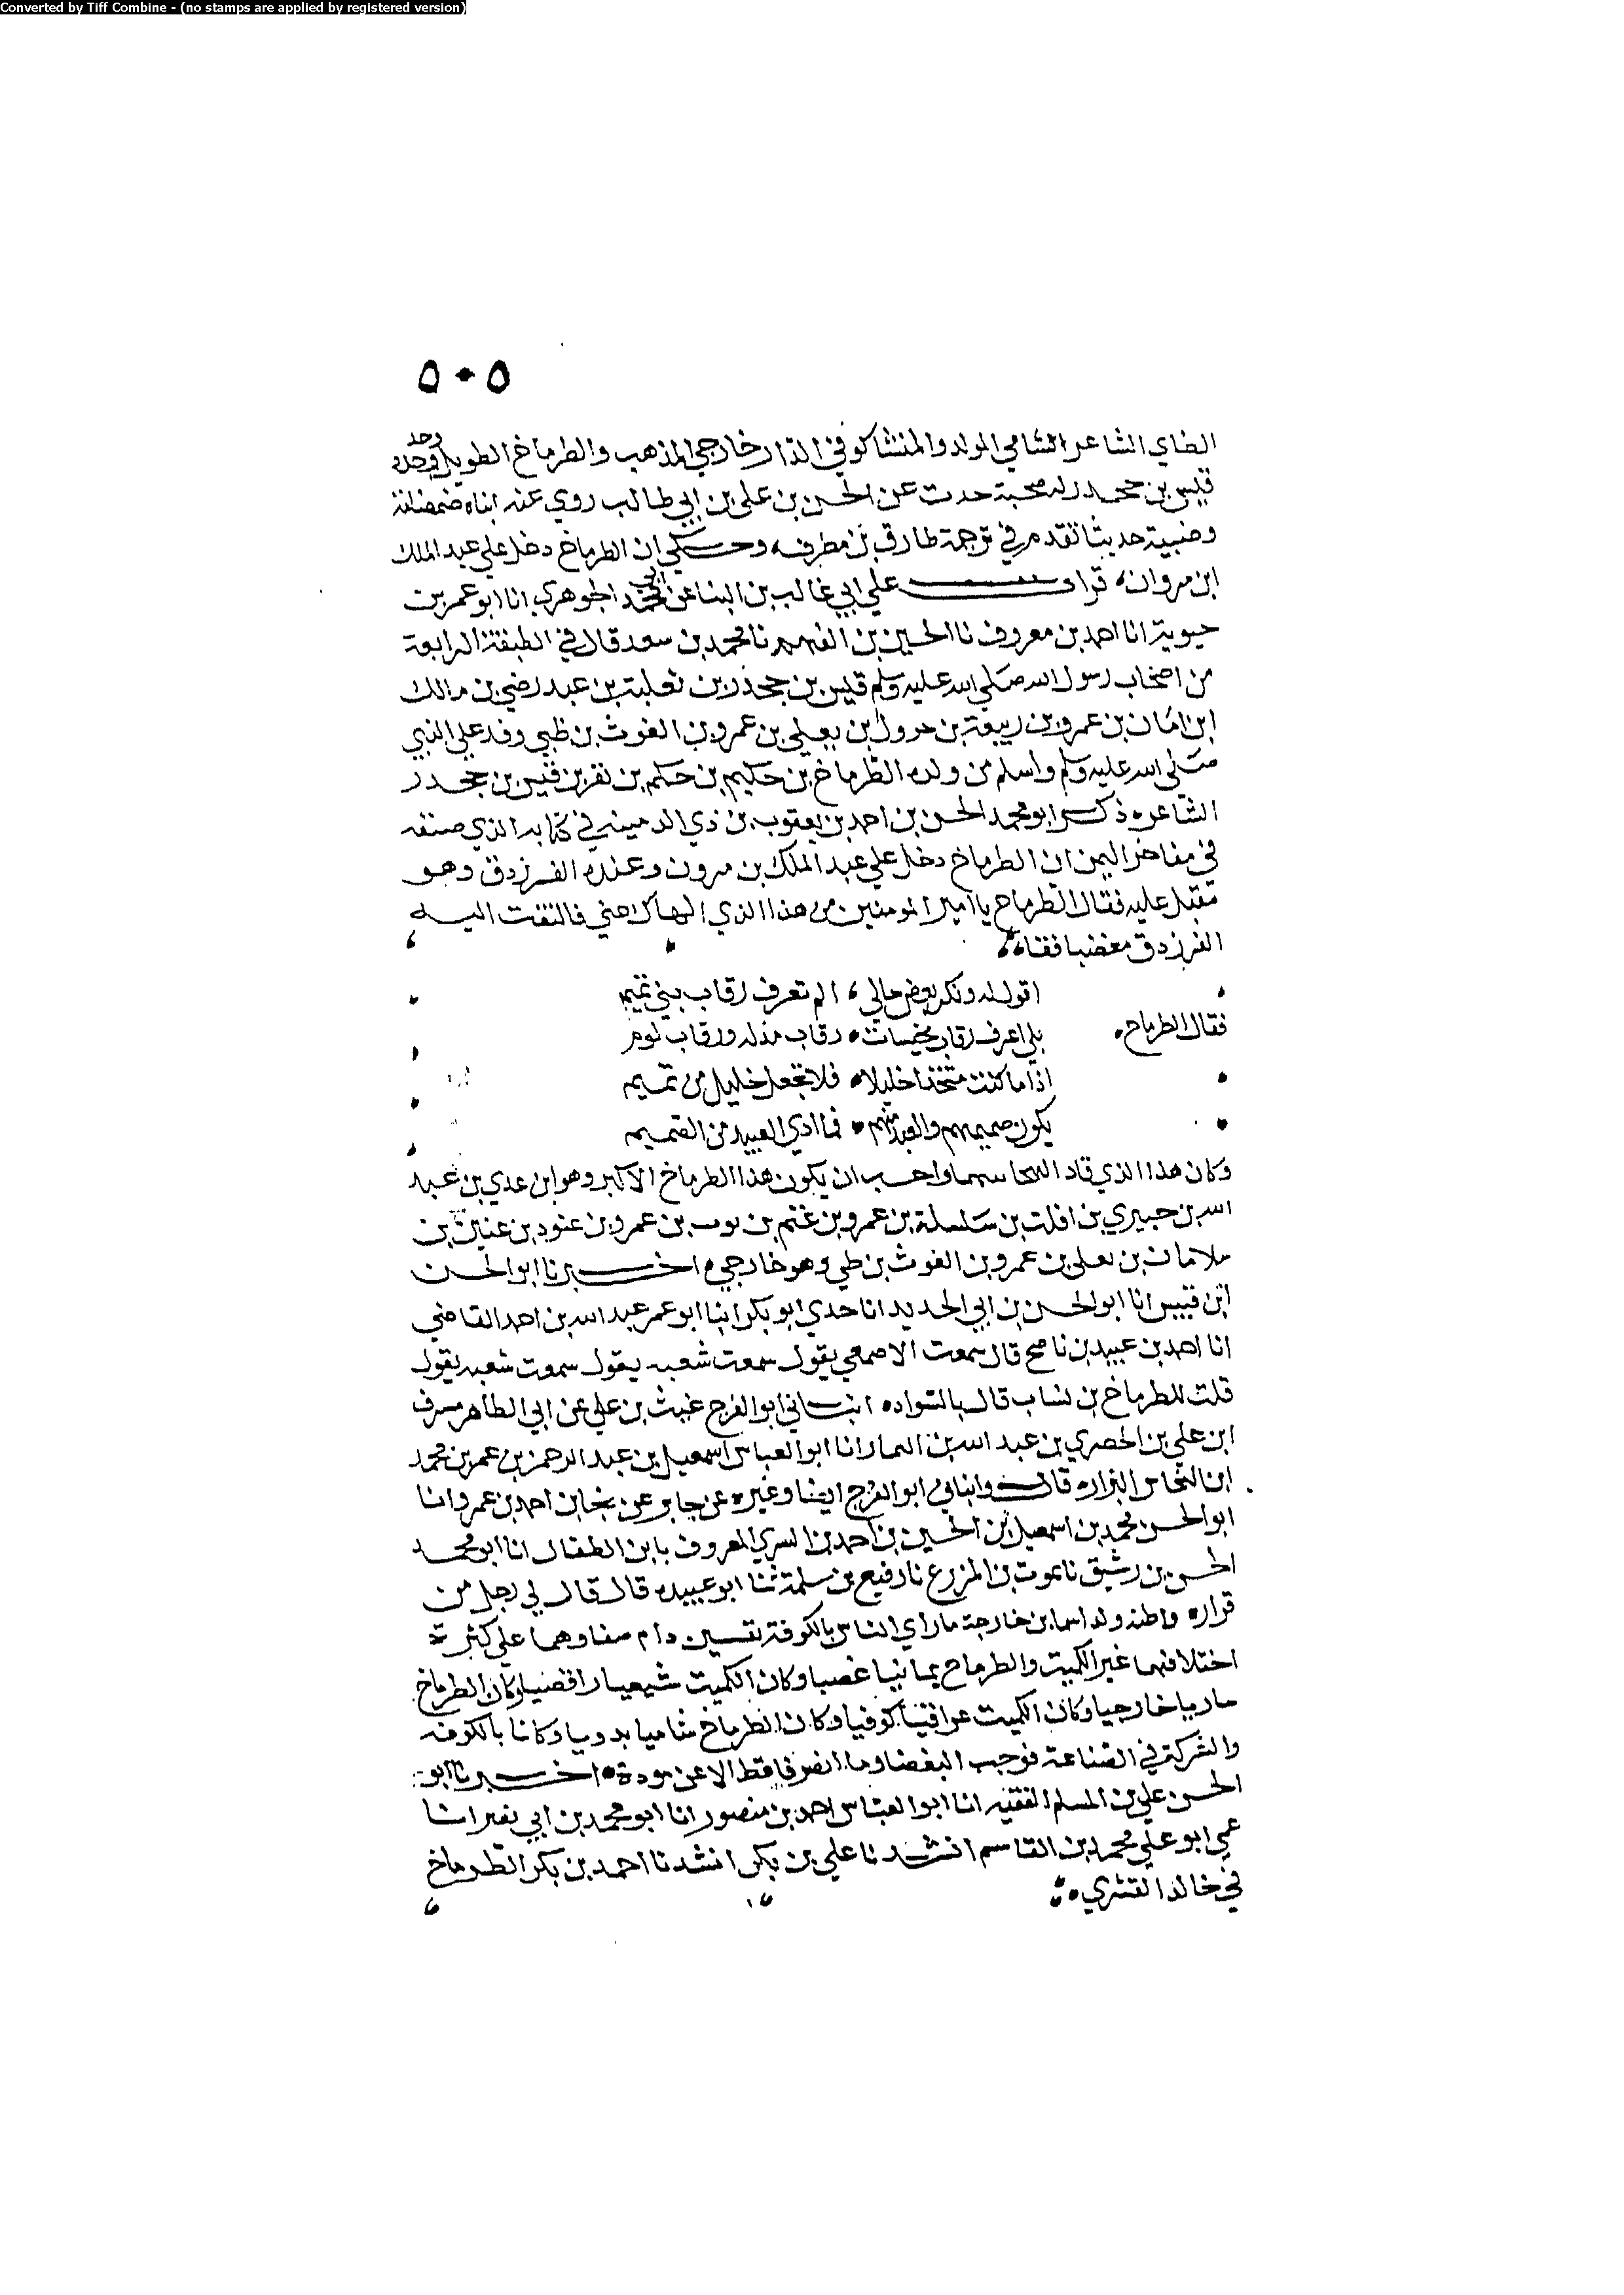 Converted by Tiff Combine - (no stamps are applied by registered version)
٥٠٥
الطاي الشاعر الشامي المولد والمنشا كوفي الدار خارجي المذهب والطرماخ الطويل وجده
قيس بن جحدر له صحبة حدث عن الحسن بن علي بن ابي طالب روي عنه ابناه ضمضانة
وضبية حديثا تقدم في ترجمة طارق بن مطرف وحكي ان الطرماخ دخل علي عبد الملك
ابن مروان قرات علي ابي غالب بن البنا عن ابي محمد الجوهري انا ابو عمر بن
حيوية انا احمد بن معروف نا الحسين بن الفهم نا محمد بن سعد قال في الطبقة الرابعة
من اصحاب رسول الله صلي الله عليه وسلم قيس بن جحدر بن ثعلبة بن عبد رضي بن مالك
ابن امان بن عمرو بن ربيعة بن جرول بن يعلي بن عمرو بن الغوث بن طي وفد علي النبي
صلي الله عليه وسلم واسلم من ولده الطرماخ بن حكيم بن حكم بن نفر بن قيس بن جحدر
الشاعر ذكر ابو محمد الحسن بن احمد بن يعقوب بن ذي الدمينه في كتابه الذي صنفه
في مفاخر اليمن ان الطرماخ دخل علي عبد الملك بن مرون وعنده الفرزدق وهو
مقبل عليه فقال الطرماح يا امير المومنين من هذا الذي الهاك عني فالتفت اليه
الفرزدق مغضبا فقال
اقول له ونكر بعض حالي الم تعرف رقاب بني تميم
فقال الطرماح
بلي اعرف رقاب مخيسات رقاب مذله ورقاب لوم
اذا ما كنت متخذا خليلا فلا تجعل خليل من تميم
يكون صميمهم والعبد منهم فما ادي العبيد من الصميم
وكان هذا الذي قاد الهجا بينهما واحسب ان يكون هذا الطرماخ الاكبر وهو ابن عدي بن عبد
الله بن حبيري بن افلت بن سلسلة بن عمرو بن غنم بن ثوب بن عمرو بن عنود بن عنين بن
سلامان بن يعلي بن عمرو بن الغوث بن طي وهو خارجي اخبرنا ابو الحسن
ابن قبيس انا ابو الحسن بن ابي الحديد انا جدي ابو بكر انبا ابو عمر عبد الله بن احمد القاضي
انا احمد بن عبيد بن ناصح قال سمعت الاصمعي يقول سمعت شعبه يقول سمعت شعبه يقول
قلت للطرماخ اين نشاب قال بالسواد انباني ابو الفرج غيث بن علي عن ابي الطاهر مشرف
ابن علي بن الحصري بن عبد الله بن التمار انا ابو العباس اسمعيل بن عبد الرحمن بن عمر بن محمد
ابن النحاس البزار قال وانباني ابو الفرج ايضا وغيره عن جابر عن احمد بن عمرو انا
ابو الحسن محمد بن اسمعيل بن الحسين بن احمد بن السري المعروف بابن الطفال انا ابو محمد
الحسن بن رشيق نا يموت بن المزرع نا رفيع بن سلمة ثنا ابو عبيده قال قال لي رجل من
فزاره واظنه ولد اسما بن خارجة ما راي الناس بالكوفة نفسين دام صفاوهما علي كثرة
اختلافهما غير الكميت والطرماح يمانيا عصبا وكان الكميت شيعيا رافضيا وكان الطرماخ
ماريا خارجيا وكان الكميت عراقيا كوفيا وكان الطرماخ شاميا بدويا وكانا بالكوفه
والشركة في الصناعة فوجب البغضا وما انصرفا قط الا عن مودة اخبرنا ابو
الحسن علي بن المسلم الفقيه انا ابو العباس احمد بن منصور انا ابو محمد بن ابي نصر انا
عمي ابو علي محمد بن القاسم انشدنا علي بن بكر انشدنا احمد بن بكر الطرماخ
في خالد القشري